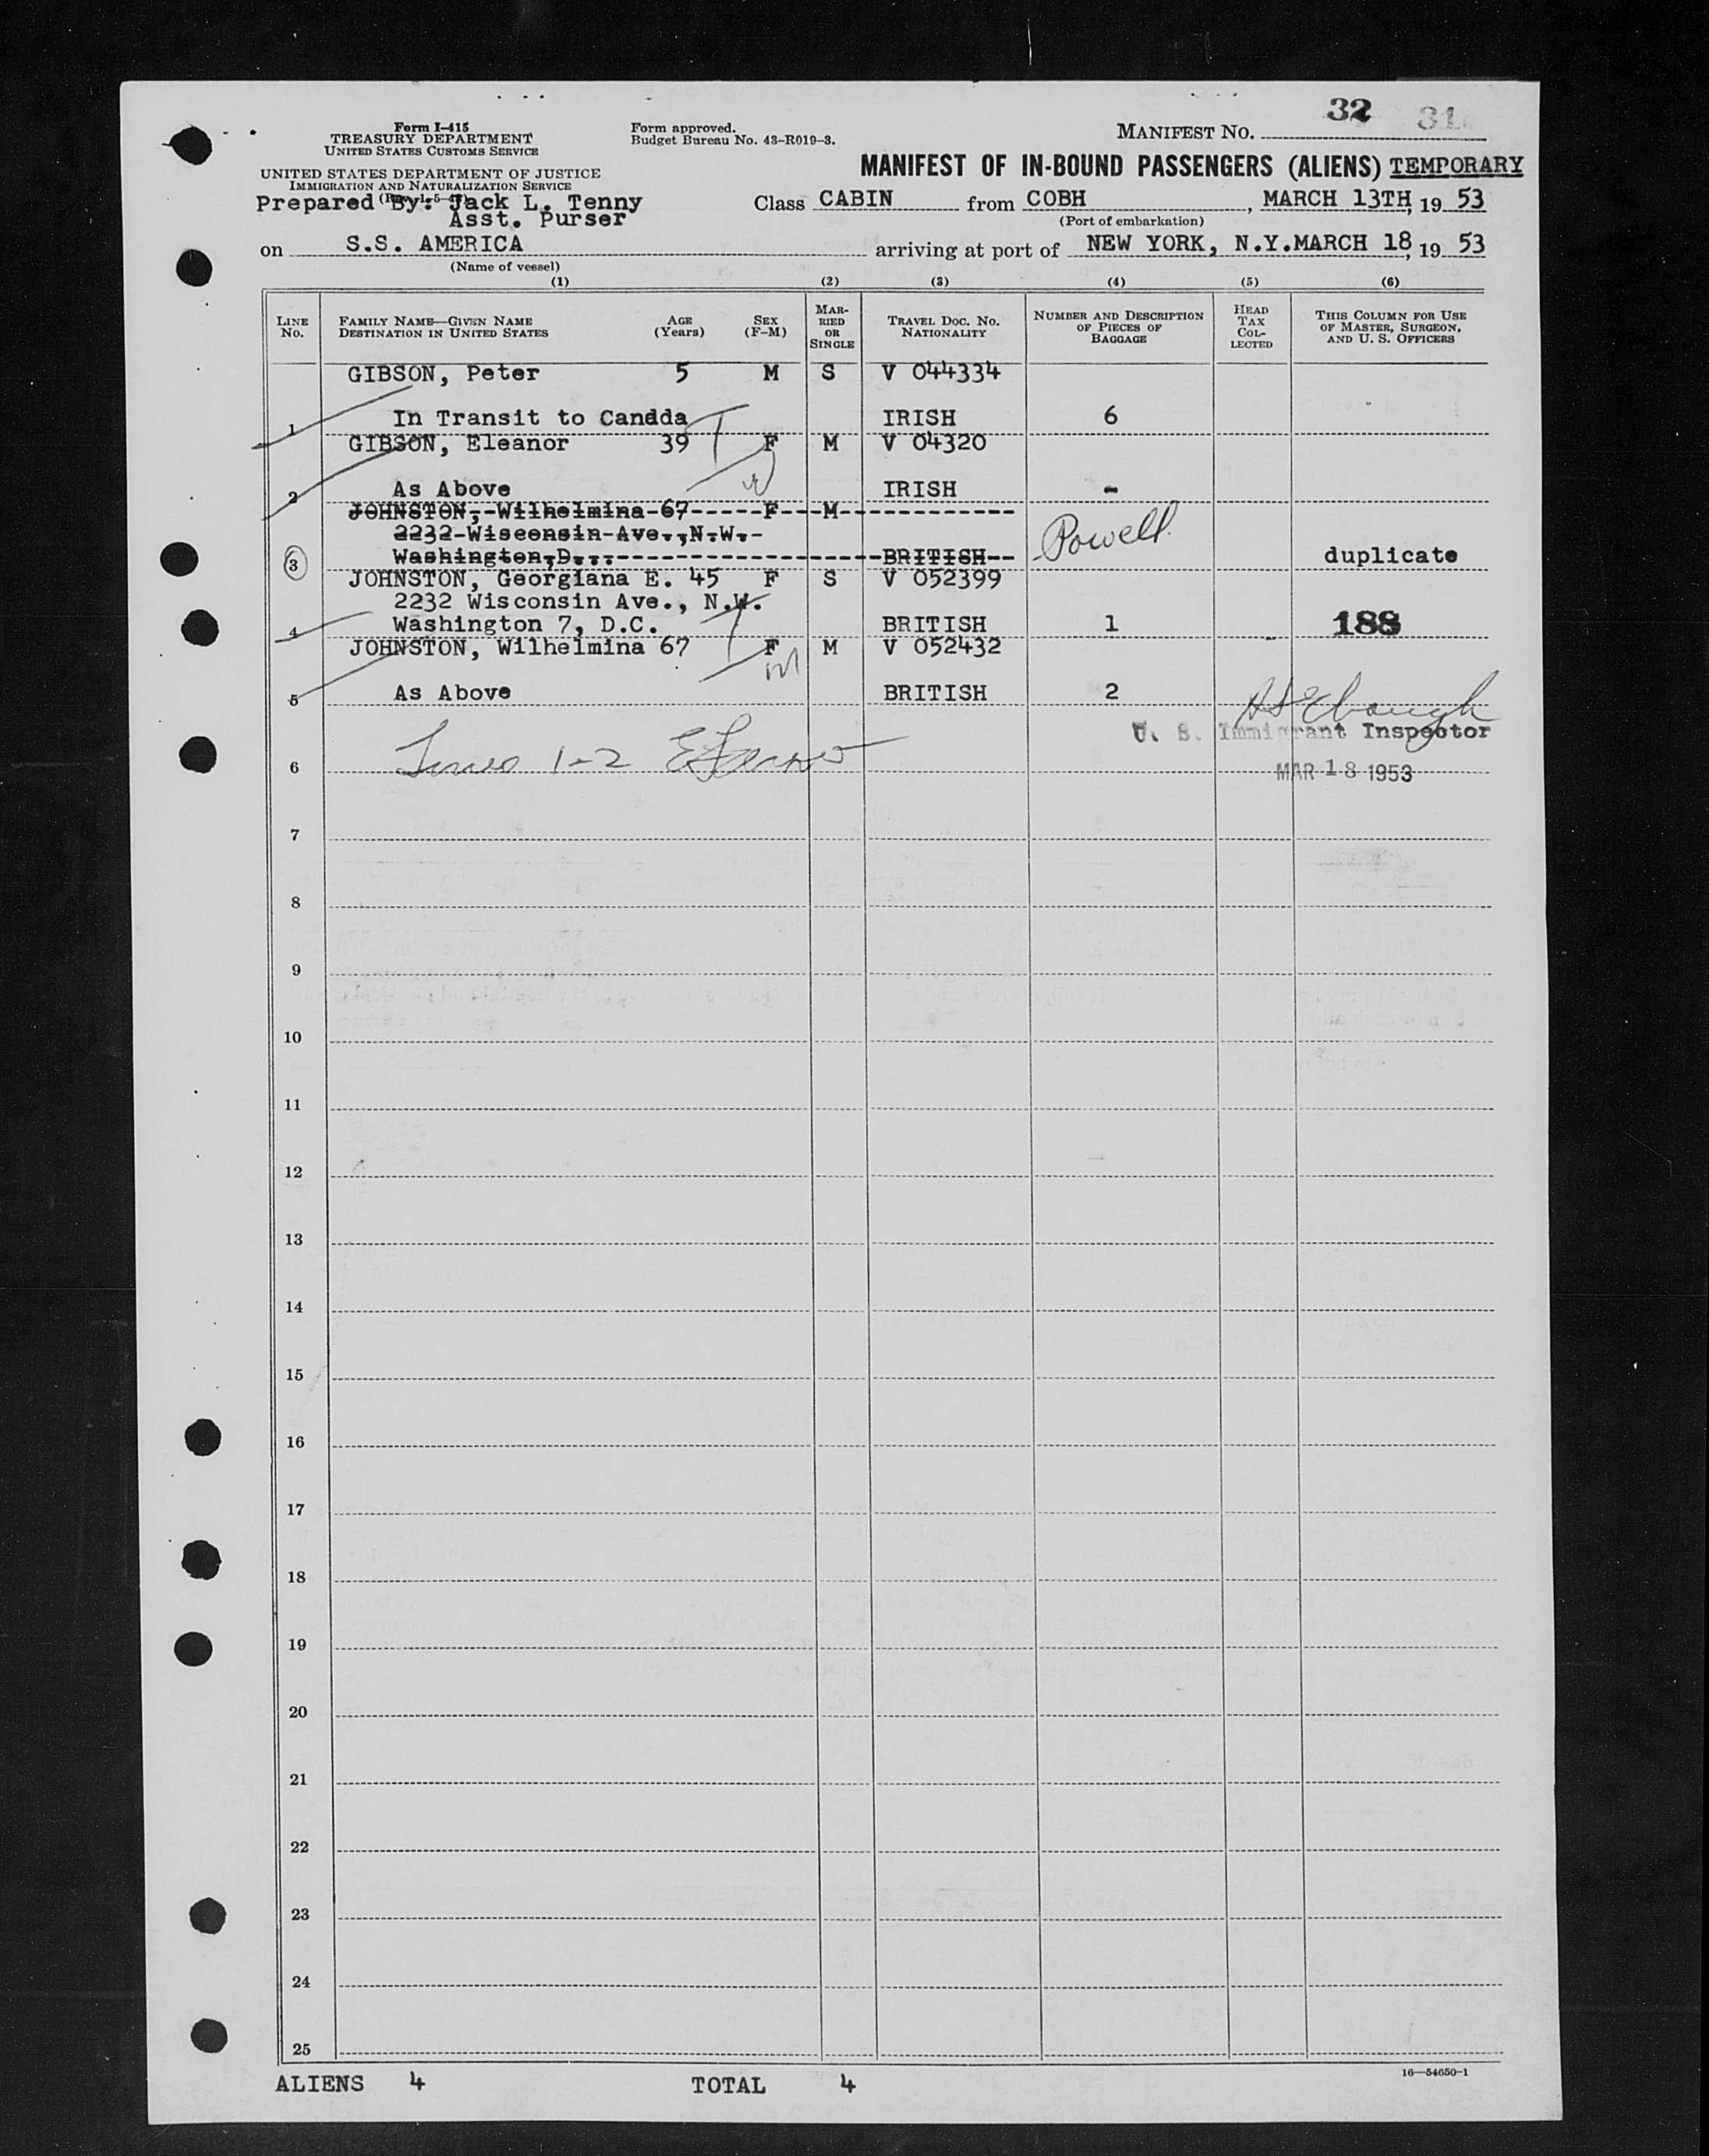 32 31
MANIFEST NO.
Form I-415
TREASURY DEPARTMENT
UNITED STATES CUSTOMS SERVICE
Form approved.
Budget Bureau No. 43-R019-3.
UNITED STATES DEPARTMENT OF JUSTICE
IMMIGRATION AND NATURALIZATION SERVICE
MANIFEST OF IN-BOUND PASSENGERS (ALIENS) TEMPORARY
Prepared By: Jack L. Tenny
Asst. Purser
Class CABIN from COBH, MARCH 13TH, 19 53
(Port of embarkation)
on S.S. AMERICA arriving at port of NEW YORK, N.Y. MARCH 18, 19 53
(Name of vessel)
(1) (2) (3) (4) (5) (6)
LINE No. FAMILY NAME—GIVEN NAME DESTINATION IN UNITED STATES AGE (Years) SEX (F-M) MARRIED OR SINGLE TRAVEL DOC. NO. NATIONALITY NUMBER AND DESCRIPTION OF PIECES OF BAGGAGE HEAD TAX COLLECTED THIS COLUMN FOR USE OF MASTER, SURGEON, AND U. S. OFFICERS
GIBSON, Peter 5 M S V 044334
1 In Transit to Candda IRISH 6
GIBSON, Eleanor 39 F M V 04320
2 As Above IRISH -
JOHNSTON, Wilhelmina 67 F M
2232 Wisconsin Ave., N.W.
3 Washington, D... BRITISH Powell duplicate
JOHNSTON, Georgiana E. 45 F S V 052399
2232 Wisconsin Ave., N.W.
4 Washington 7, D.C. BRITISH 1 188
JOHNSTON, Wilhelmina 67 F M V 052432
5 As Above BRITISH 2
U. S. Immigrant Inspector
6 1-2 MAR 18 1953
7
8
9
10
11
12
13
14
15
16
17
18
19
20
21
22
23
24
25
16—54650-1
ALIENS 4 TOTAL 4